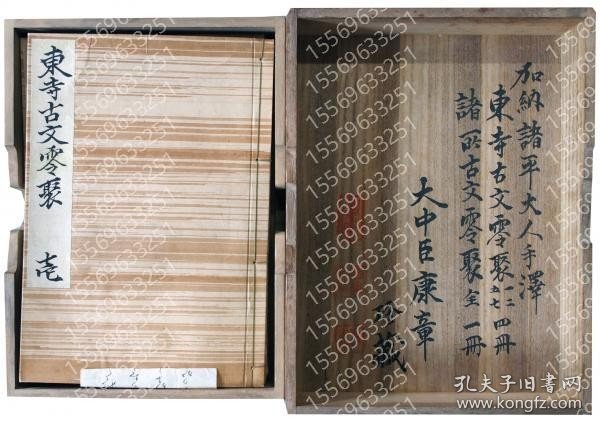 東寺古文零聚 壱
加納諸平大人手澤
東寺古文零聚 一二五七 四冊
諸所古文零聚 全一冊
大中臣康章
珎蔵
15569633251
孔夫子旧书网
www.kongfz.com